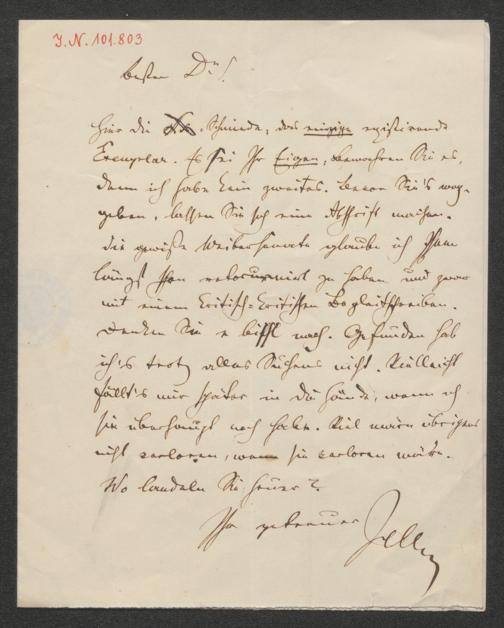 J. N. 101.803
bester Dr!
Hier die Schmiede, das einzige existirende
Exemplar. Es sei Ihr Eigen, bewahren Sie es,
denn ich habe kein zweites. Bevor Sie's weg-
geben, lassen Sie sich eine Abschrift machen.
Die gewisse Weiber glaube ich Ihnen
längst schon retournirt zu haben und zwar
mit einem kritisch-kritischen Begleitschreiben.
Denken Sie a bissl nach. Gefunden hab
ich's trotz alles Suchens nicht. Vielleicht
fällt's mir später in die Hände, wenn ich
sie überhaupt noch habe. Viel wäre übrigens
nicht verloren, wenn sie verloren wäre.
Wo landeln Sie heuer?
Ihr getreuer